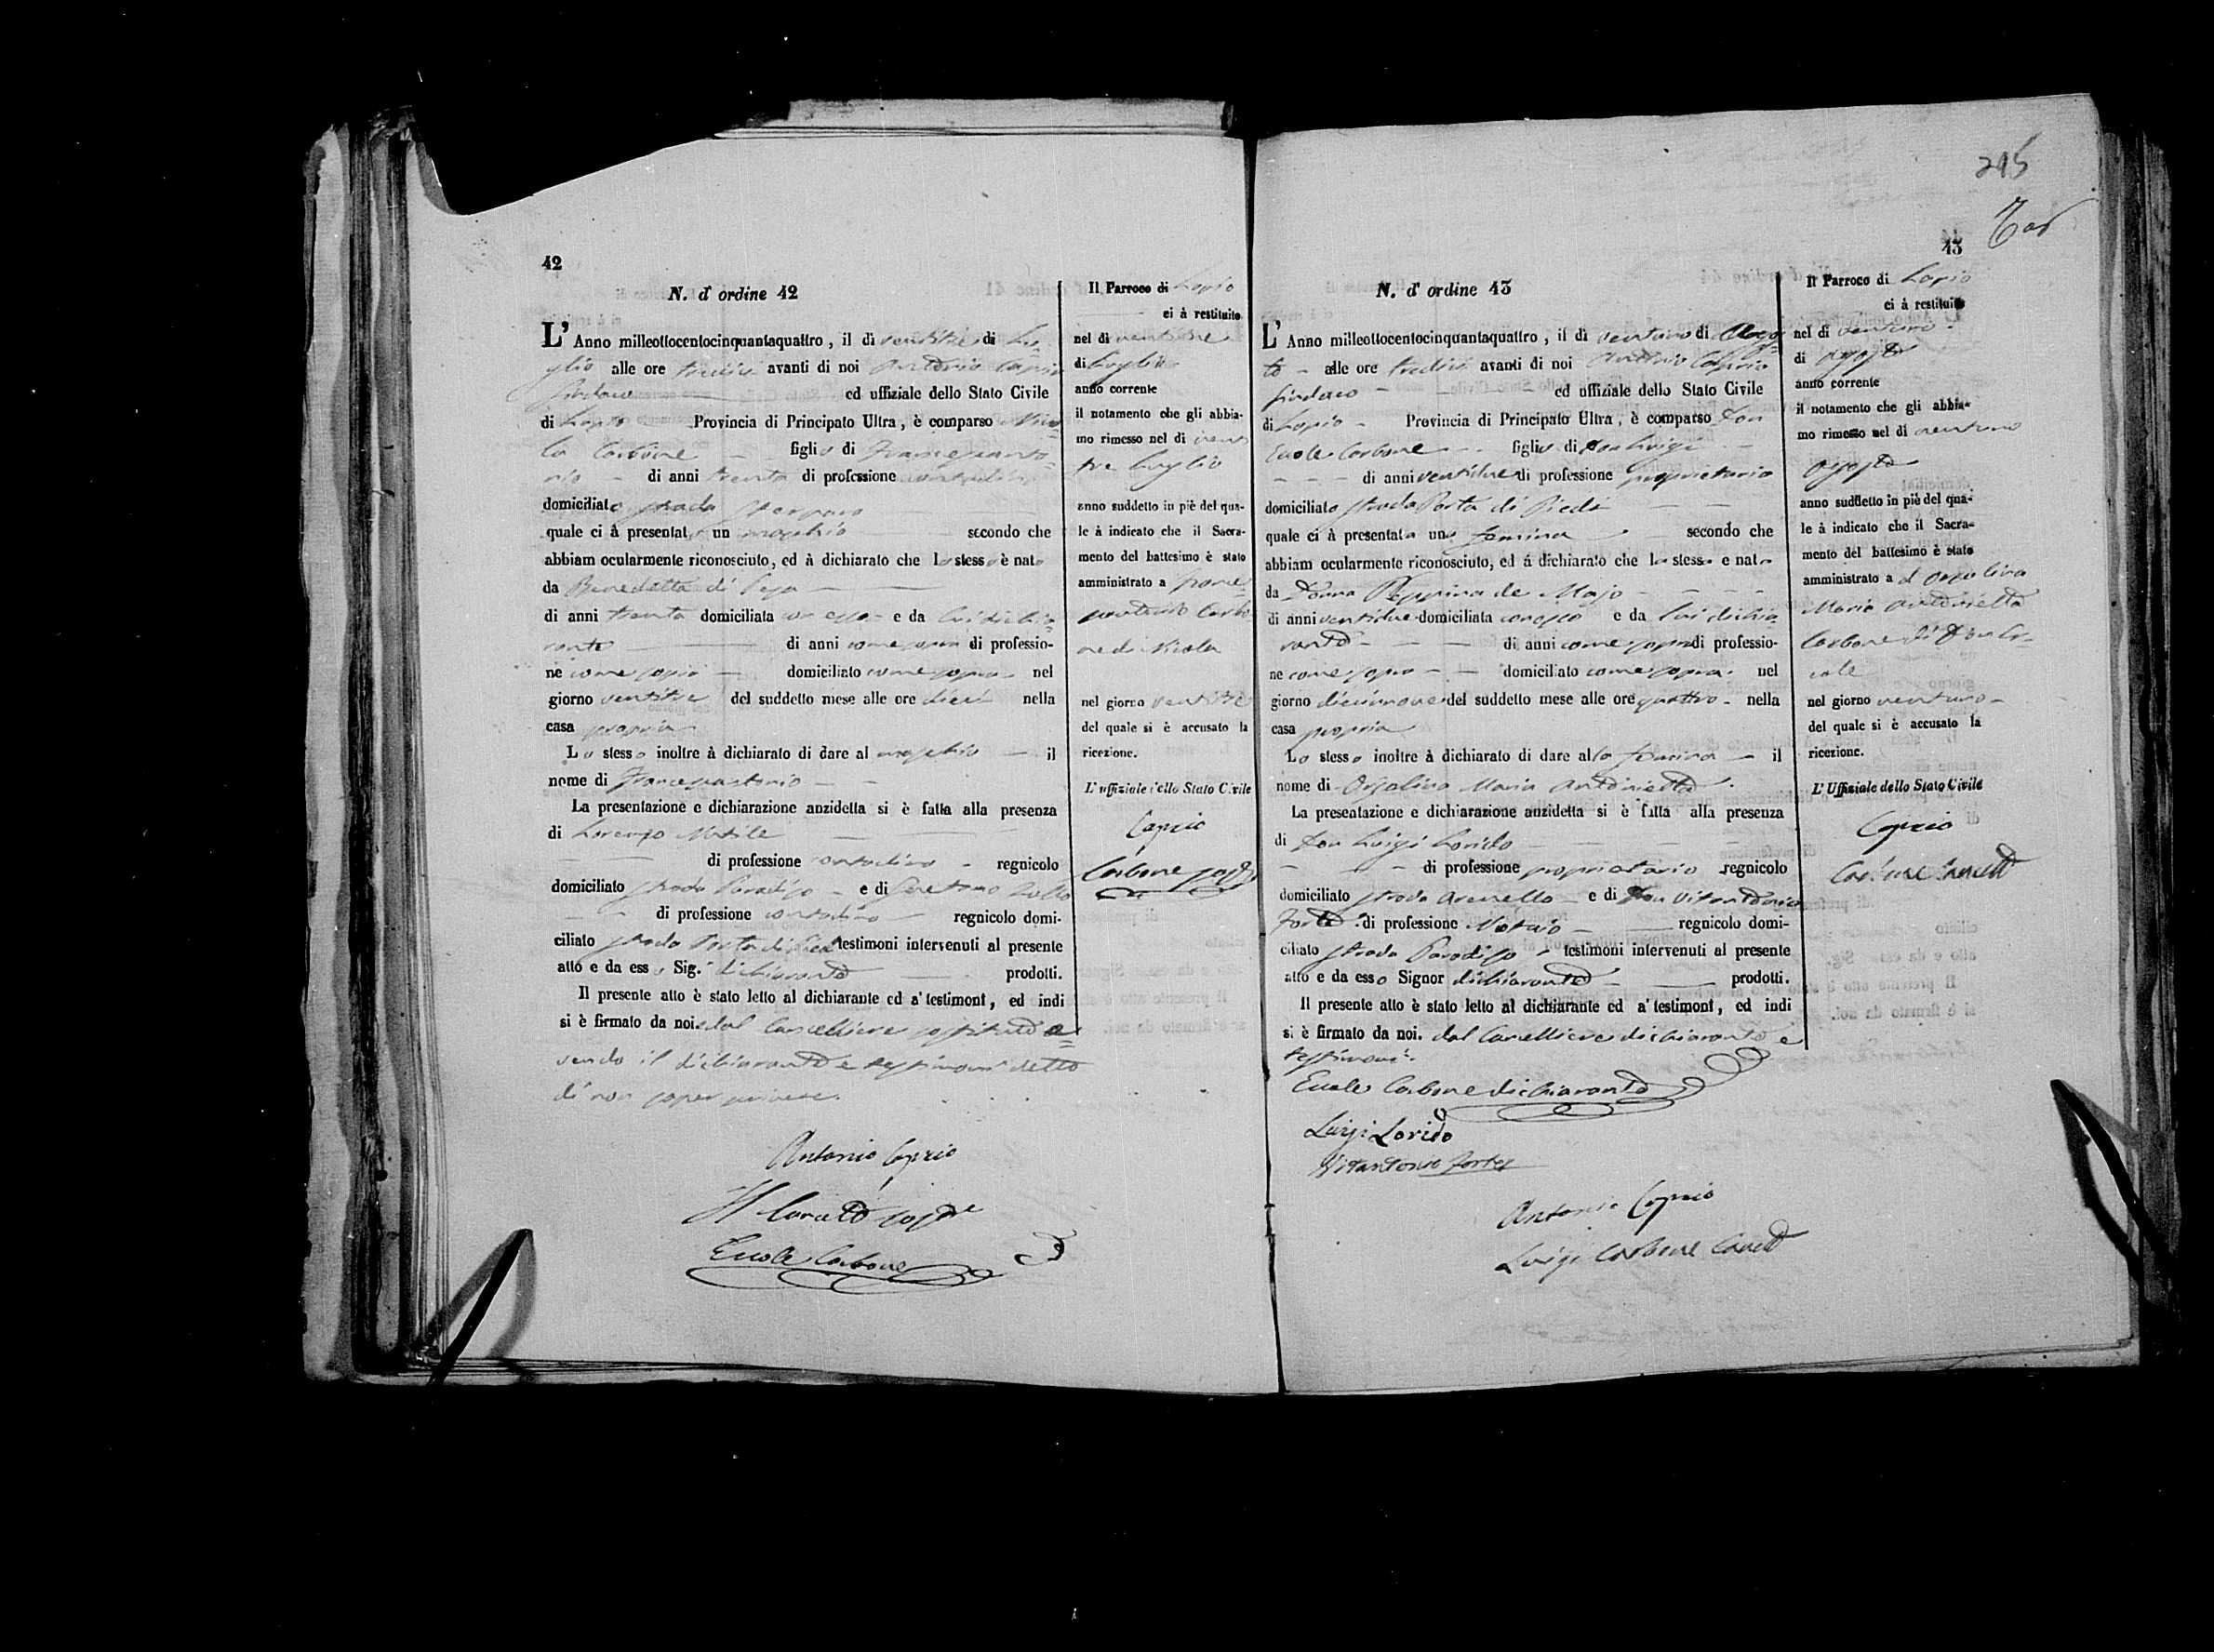 42
N. d' ordine 42
L' Anno milleottocentocinquantaquattro, il dì ventitre di Lu=
glio alle ore tredici avanti di noi Antonio Caprio
Sindaco ed uffiziale dello Stato Civile
di Lapio Provincia di Principato Ultra, è comparso Nico=
la Carbone figlio di Francescanto=
nio di anni trenta di professione contadino
domiciliato strada
quale ci à presentato un maschio secondo che
abbiam ocularmente riconosciuto, ed à dichiarato che lo stesso è nato
da Benedetta di
di anni trenta domiciliata con esso e da lui dichia=
rante di anni come sopra di professio-
ne come sopra domiciliato come sopra nel
giorno ventitre del suddetto mese alle ore dieci nella
casa propria
Lo stesso inoltre à dichiarato di dare al maschio il
nome di Francescantonio
La presentazione e dichiarazione anzidetta si è fatta alla presenza
di Lorenzo
di professione contadino regnicolo
domiciliato strada Paradiso e di Gaetano
di professione contadino regnicolo domi-
ciliato strada Porta di Piedi testimoni intervenuti al presente
atto e da esso Sig.r dichiarante prodotti.
Il presente atto è stato letto al dichiarante ed a' testimont, ed indi
si è firmato da noi e dal Cancelliere sostituto a=
vendo il dichiarante e testimoni detto
di non saper scrivere.
Antonio Caprio
Il
Ercole Carbone
Il Parroco di Lapio
ci à restituito
nel dì ventitre
di Luglio
anno corrente
il notamento che gli abbia-
mo rimesso nel dì venti
tre Luglio
anno suddetto in piè del qua-
le à indicato che il Sacra-
mento del battesimo è stato
amministrato a France=
scantonio Carbo=
ne di Nicola
nel giorno ventitre
del quale si è accusato la
ricezione.
L' uffiziale dello Stato Civile
Caprio
Carbone
43
N. d' ordine 43
L' Anno milleottocentocinquantaquattro, il dì ventuno di Agos=
to alle ore tredici avanti di noi Antonio Caprio
Sindaco ed uffiziale dello Stato Civile
di Lapio Provincia di Principato Ultra, è comparso Don
Ercole Carbone figlio di Don Luigi
di anni ventidue di professione proprietario
domiciliato strada Porta di Piedi
quale ci à presentata una femina secondo che
abbiam ocularmente riconosciuto, ed á dichiarato che la stessa e nata
da Donna Peppina de Majo
di anni ventidue domiciliata con esso e da lui dichia=
rante di anni come sopra di professio-
ne come sopra domiciliato come sopra nel
giorno diciannove del suddetto mese alle ore quattro nella
casa propria
Lo stesso inoltre à dichiarato di dare alla femina il
nome di Orsolina Maria Antonietta
La presentazione e dichiarazione anzidetta si è fatta alla presenza
di Don Luigi Lorido
di professione proprietario regnicolo
domiciliato strada Arenello e di Don Vitantonio
Forte di professione Notaio regnicolo domi-
ciliato strada Paradiso testimoni intervenuti al presente
atto e da esso Signor dichiarante prodotti.
Il presente atto è stato letto al dichiarante ed a' testimont, ed indi
si è firmato da noi. dal Cancelliere dichiarante e
testimoni.
Ercole Carbone dichiarante
Luigi Lorido
Vitantonio Forte
Antonio Caprio
Luigi Carbone
Il Parroco di Lapio
ci à restituito
nel dì ventuno
di Agosto
anno corrente
il notamento che gli abbia-
mo rimesso nel dì ventuno
Agosto
anno suddetto in piè del qua-
le à indicato che il Sacra-
mento del battesimo è stato
amministrato a d Orsolina
Maria Antonietta
Carbone di Don Er=
cole
nel giorno ventuno
del quale si è accusato la
ricezione.
L' Uffiziale dello Stato Civile
Caprio
Carbone